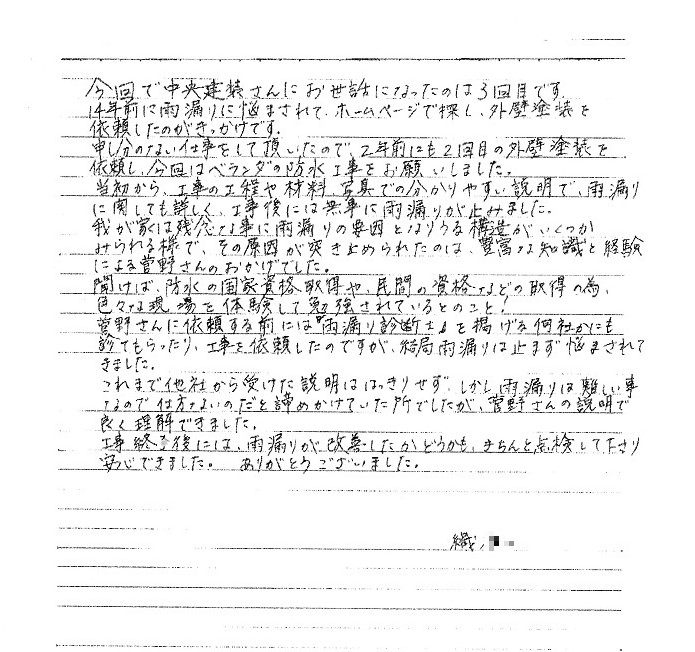 今回で中央建装さんにお世話になったのは3回目です。
14年前に雨漏りに悩まされて、ホームページで探し、外壁塗装を
依頼したのがきっかけです。
申し分のない仕事をして頂いたので、2年前にも2回目の外壁塗装を
依頼し、今回はベランダの防水工事をお願いしました。
当初から、工事の工程や材料、写真での分かりやすい説明で、雨漏り
に関しても詳しく、工事後には無事に雨漏りが止みました。
我が家は残念な事に雨漏りの要因となりうる構造がいくつか
みられる様で、その原因が突き止められたのは、豊富な知識と経験
による菅野さんのおかげでした。
聞けば、防水の国家資格取得や、民間の資格などの取得の為、
色々な現場を体験して勉強されているとのこと！
菅野さんに依頼する前には『雨漏り診断士』を掲げる何社かにも
診てもらったり、工事を依頼したのですが、結局雨漏りは止まず悩まされて
きました。
これまで他社から受けた説明ははっきりせず、しかし雨漏りは難しい事
なので仕方ないのだと諦めかけていた所でしたが、菅野さんの説明で
良く理解できました。
工事終了後には、雨漏りが改善したかどうかも、きちんと点検して下さり
安心できました。 ありがとうございました。